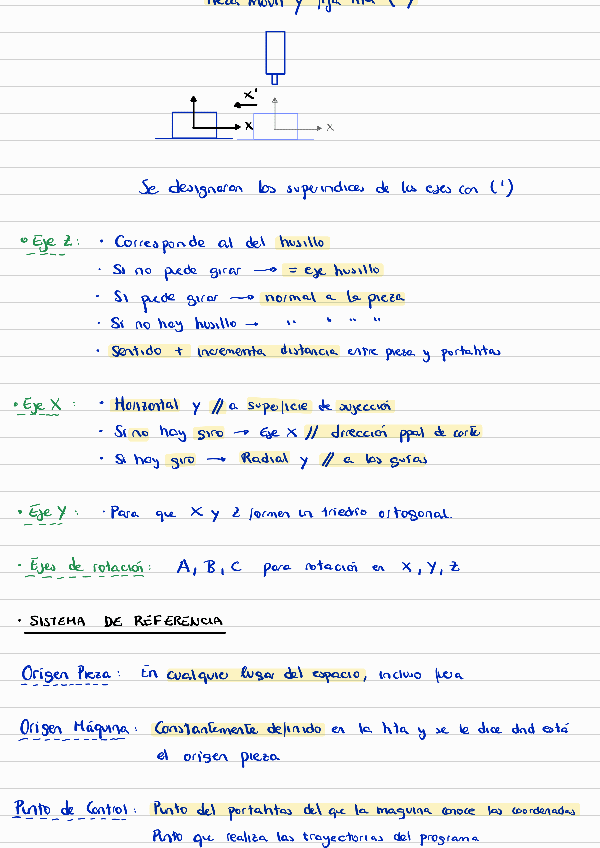 Pieza movil y fija hta (')
X'
X
X
Se designaran los superindices de los ejes con (')
• Eje Z: · Corresponde al del husillo
· Si no puede girar → = eje husillo
· Si puede girar → normal a la pieza
· Si no hay husillo → " " " "
· Sentido + incrementa distancia entre pieza y portahtas
• Eje X : · Horizontal y // a superficie de sujección
· Si no hay giro → Eje X // dirección ppal de corte
· Si hay giro → Radial y // a las guías
• Eje Y : · Para que X y Z formen un triedro ortogonal.
· Ejes de rotación: A, B, C para rotación en X, Y, Z
· SISTEMA DE REFERENCIA
Origen Pieza : En cualquier lugar del espacio, incluso fuera
Origen Máquina : Constantemente definido en la hta y se le dice dnd está
el origen pieza
Punto de Control : Punto del portahtas del que la maquina conoce las coordenadas
Punto que realiza las trayectorias del programa